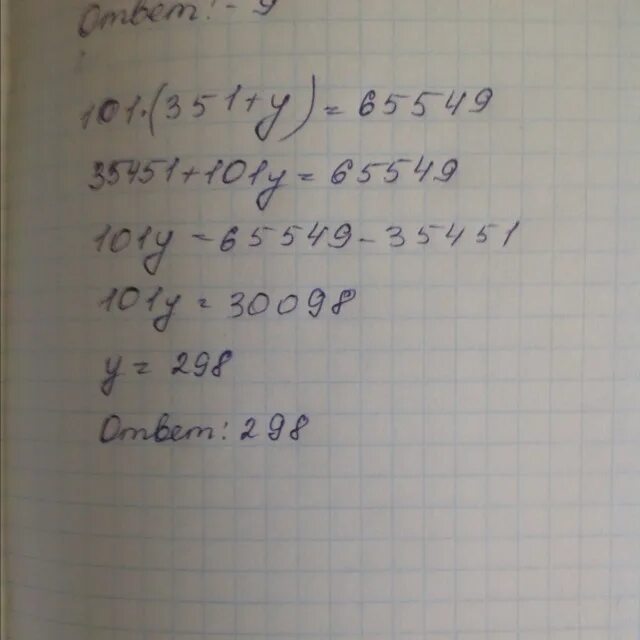 Ответ: - 9
101·(351+y) = 65549
35451+101y = 65549
101y = 65549 - 35451
101y = 30098
y = 298
Ответ: 298